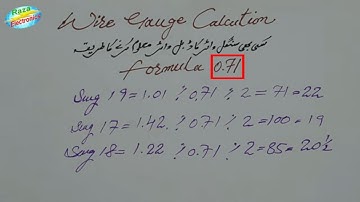 Raza
Electronics
Wire Gauge Calcution
کسی بھی سنگل وائر کا ڈبل وائر معلوم کرنے کا طریقہ
formula 0.71
Swg 19 = 1.01 ٪ 0.71 ٪ 2 = 71 = 22
Swg 17 = 1.42 ٪ 0.71 ٪ 2 = 100 = 19
Sawg 18 = 1.22 ٪ 0.71 ٪ 2 = 85 = 20½